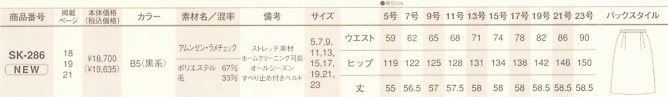 ●単位cm
商品番号 掲載ページ 本体価格(税込価格) カラー 素材名／混率 備考 サイズ 5号 7号 9号 11号 13号 15号 17号 19号 21号 23号 バックスタイル
SK-286
NEW
18
19
21
¥18,700
(¥19,635)
B5(黒系)
アムンゼン・ラメチェック
ポリエステル 67%
毛 33%
ストレッチ素材
ホームクリーニング可能
オールシーズン
すべり止め付きベルト
5,7,9,
11,13,
15,17,
19,21,
23
ウエスト 59 62 65 68 71 74 78 82 86 90
ヒップ 119 122 125 128 131 134 138 142 146 150
丈 55 56.5 57 57.5 58 58 58 58.5 58.5 58.5